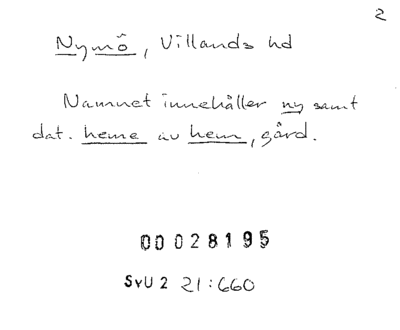 2
Nymö, Villands hd
Namnet innehåller ny samt
dat. heme av hem, gård.
00028195
SvU 2 21:660